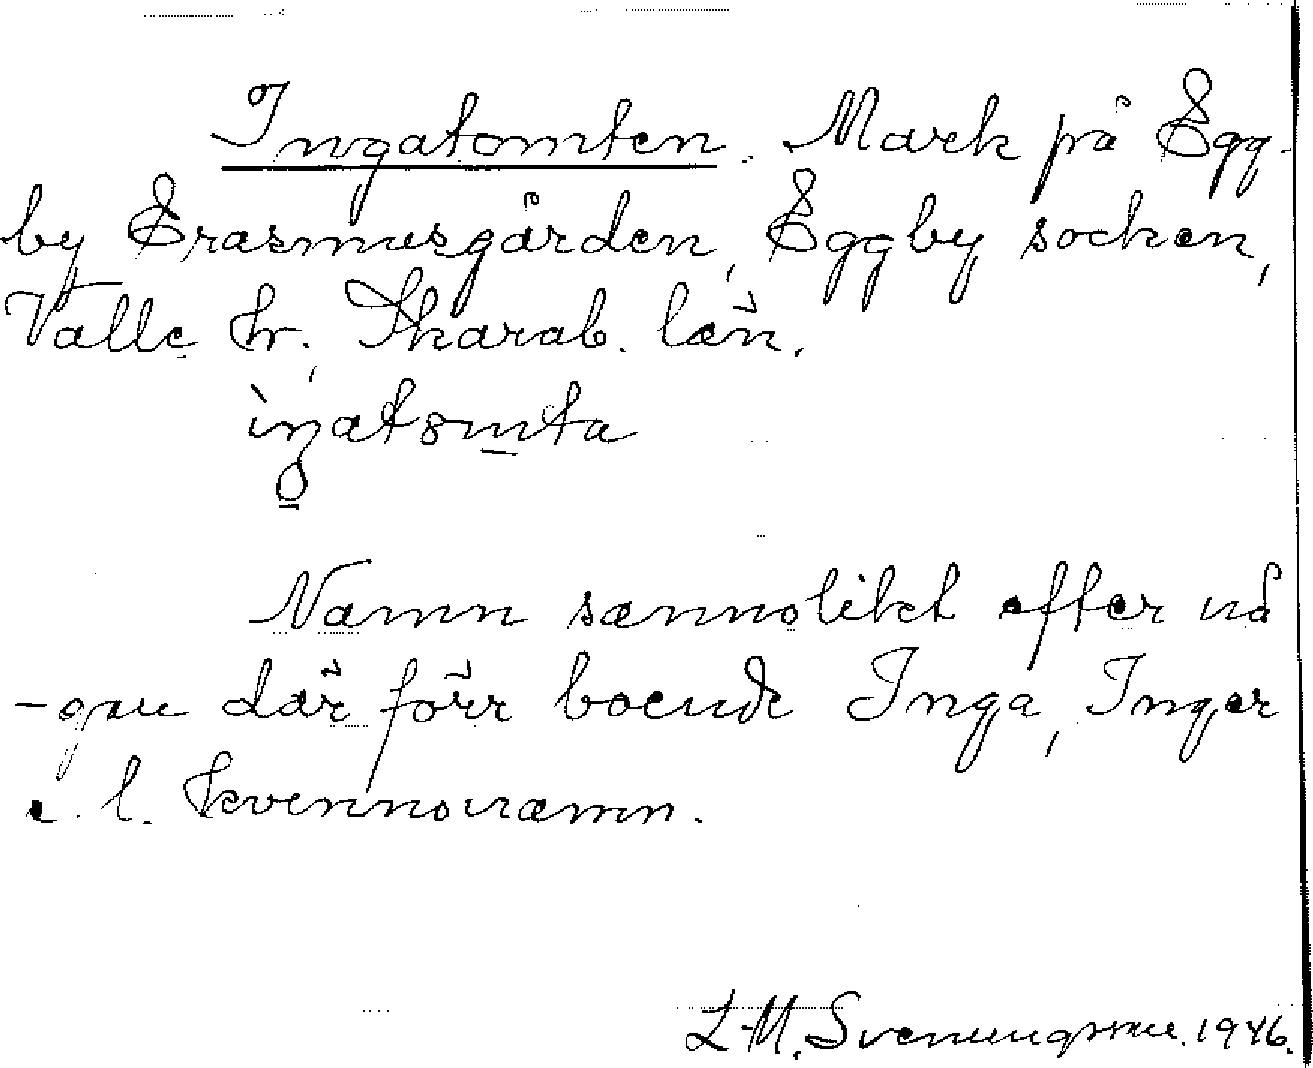 Ingatomten. Mark på Egg-
by Erasmusgården, Eggby socken,
Valle hr. Skarab. län.
Namn sannolikt efter nå
-gon där förr boende Inga, Inger
e. l. kvinnonamn.
L-M. Svenungsson. 1946.